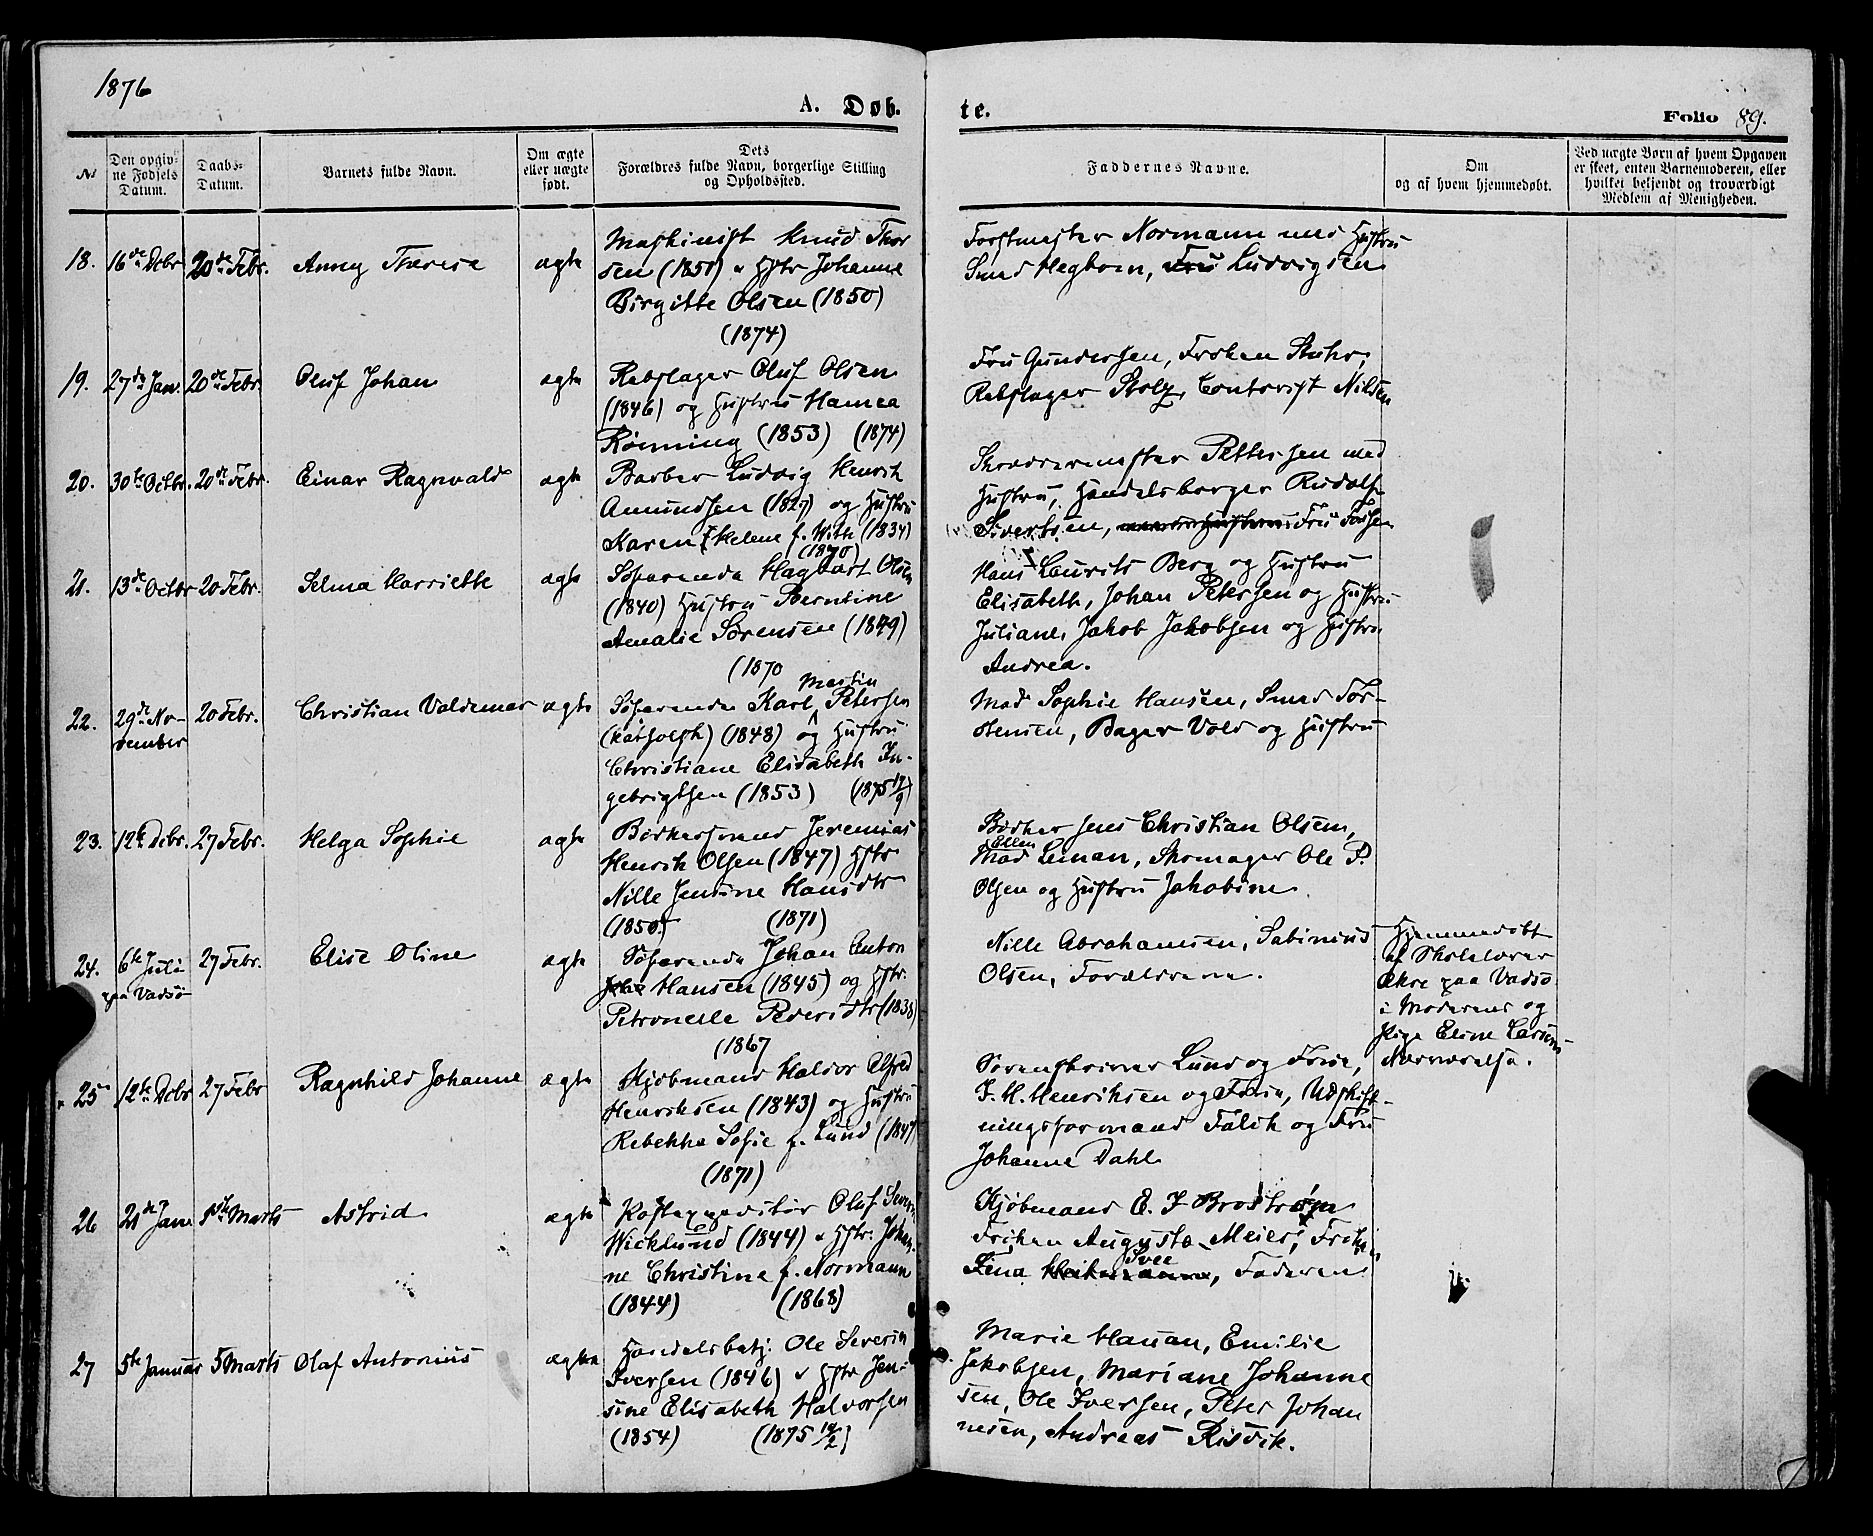 1876
A. Døb.
te.
Folio 89.
№
Den opgiv-
ne Fødsels
Datum.
Daabs-
Datum.
Barnets fulde Navn.
Om ægte
eller uægte
født.
Dets
Forældres fulde Navn, borgerlige Stilling
og Opholdssted.
Faddernes Navne.
Om
og af hvem hjemmedøbt.
Ved uægte Børn af hvem Opgaven
er skeet, enten Barnemoderen, eller
hvilket bekjendt og troværdigt
Medlem af Menigheden.
18. 16de Debr 20de Febr. Anny Therese ægte
Maskinist Knud Thor
sen (1851) & Hstr Johanne
Birgitte Olsen (1850)
(1874)
Forstmester Normann med Hustru
Smed Hegbom, Fru Ludvigsen
19. 27de Jan. 20de Febr. Oluf Johan ægte
Rebslager Oluf Olsen
(1846) og Hustru Hanna
Rønning (1853) (1874)
Fru Gundersen, Frøken Stuhr,
Rebslager Stolz, Contorist Nilsen
20. 30te Octbr. 20de Febr. Einar Ragnvald ægte
Barber Ludvig Henrik
Amundsen (1827) og Hustru
Karen Helene f. With (1834)
(1870)
Skræddermester Pettersen med
Hustru, Handelsborger Rudolf
Sivertsen, Fru
21. 13de Octbr 20 Febr. Selma Harriette ægte
Søfarende Hagbart Olsen
(1840) Hustru Berntine
Amalie Sørensen (1849)
(1870
Hans Laurits Berg og Hustru
Elisabeth, Johan Petersen og Hustru
Juliane, Jakob Jakobsen og Hustru
Andrea.
22. 29de No-
vember 20 Febr. Christian Valdemar ægte
Martin
Søfarende Karl Petersen
(katholsk) (1848) og Hustru
Christiane Elisabeth In-
gebrigtsen (1853) (1875 12/9)
Mad Sophie Hansen, Smed Tor-
stensen, Bager Vold og Hustru
23. 12te Debr. 27 Febr. Helga Sophie ægte
Bødkersvend Jeremias
Henrik Olsen (1847) Hstr
Nille Jensine Hansdtr
(1850) (1871)
Bødker Jens Christian Olsen,
Ellen
Mad Leman, Skomager Ole P.
Olsen og Hustru Jakobine.
24. 6te Juli
paa Vadsø 27 Febr. Elise Oline ægte
Søfarende Johan Anton
Hansen (1845) og Hstr.
Petronelle Pedersdtr (1838)
(1867
Nille Abrahamsen, Sabinius
Olsen, Forældrene.
Hjemmedøbt
af Skolelærer
Økre paa Vadsø
i Moderens og
Pige Eline
Nærværelse.
25 12te Debr 27 Febr Ragnhild Johanne ægte
Kjøbmand Haldor Alfred
Henriksen (1843) og Hustru
Rebekka Sofie f. Lund (1847)
(1871)
Sorenskriver Lund og Frue,
J. H. Henriksen og Frue, Udskift-
ningsformand Falch og Fru
Johanne Dahl
26 21de Jan 5te Marts Astrid ægte
Postexpeditør Oluf Severin
Wicklund (1844) & Hstr. Johan-
ne Christine f. Normann
(1844) (1868)
Kjøbmand E. J Brostrøm
Frøken Augusta Meier, Frøken
Svee
Lina, Faderen
27 5te Januar 5 Marts Olaf Antonius ægte
Handelsbetj. Ole Severin
Iversen (1846) & Hstr Jen-
sine Elisabeth Halvorsen
(1854) (1875 10/2)
Marie Hauan, Emilie
Jakobsen, Mariane Johanne
sen, Ole Iversen, Peter Johan
nesen, Andreas Risvik.